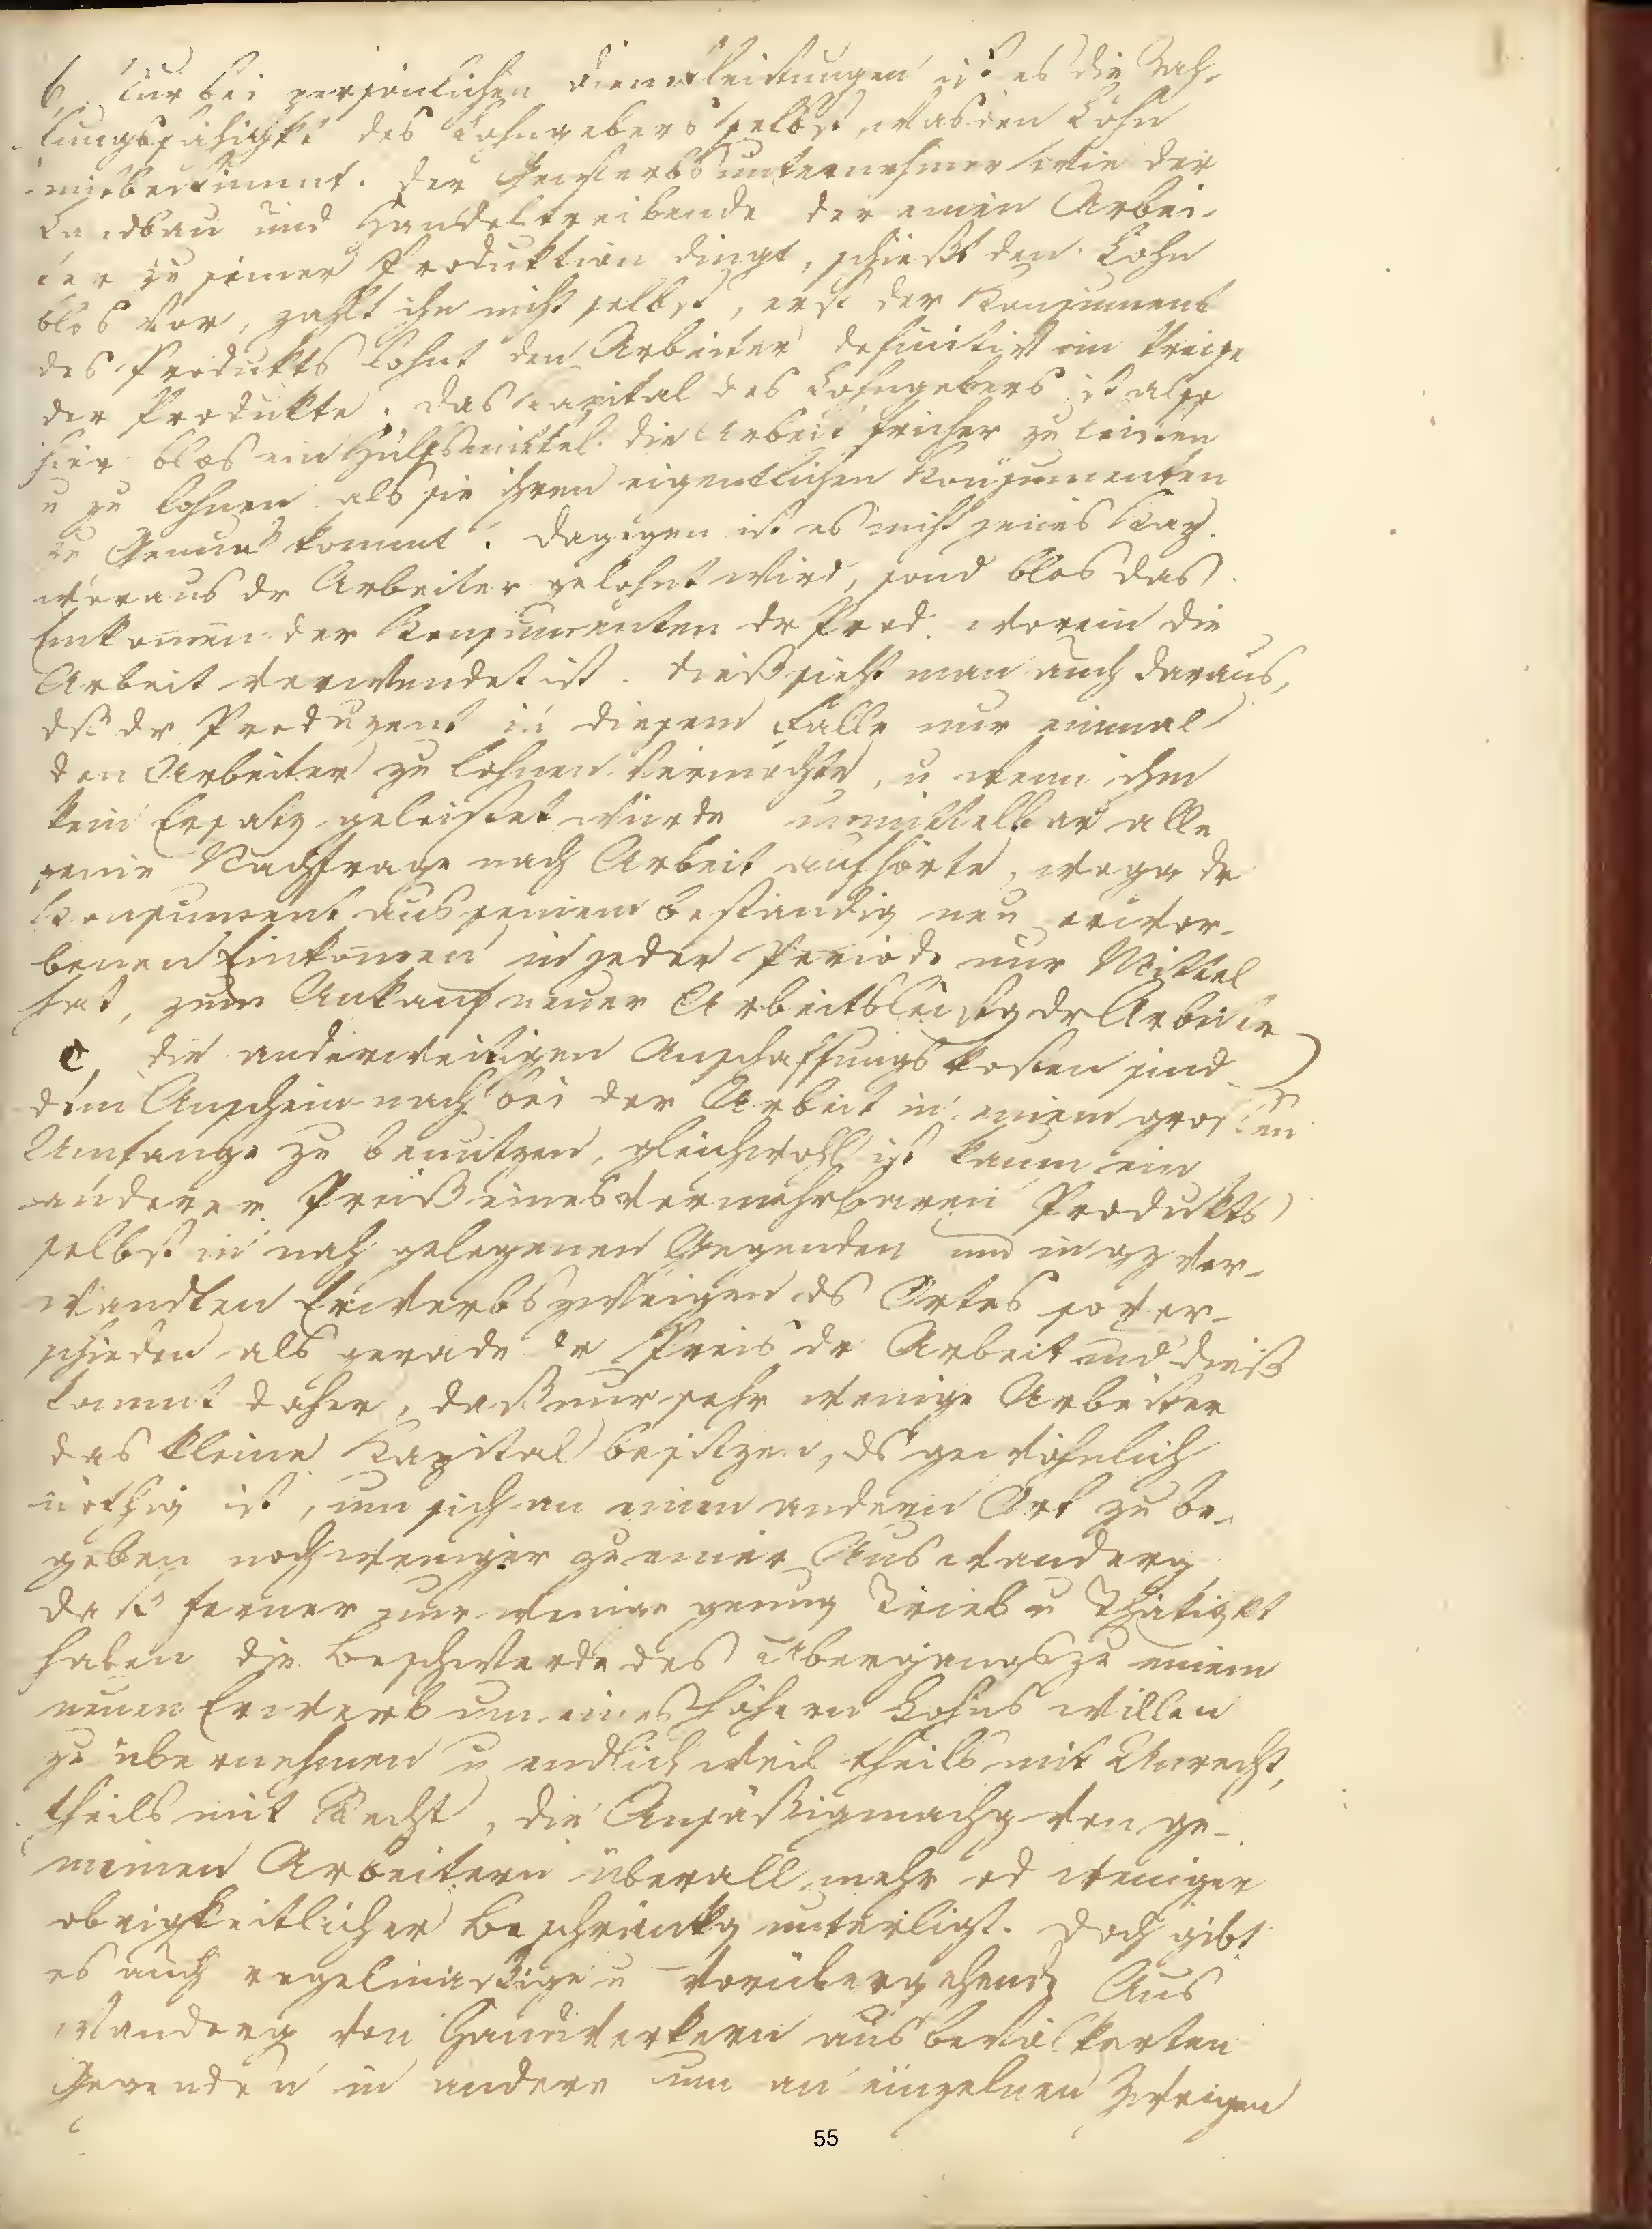 b, Nur bei persönlichen Dienstleistungen ist es die Zah-
lungsfähigkt des Lohngebers selbst, was den Lohn
mitbestimmt. Der Gewerbsunternehmer wie der
Landbau und Handeltreibende der einen Arbei-
ter zu seiner Produktion dingt, schießt den Lohn
blos vor, zahlt ihn nicht selbst, erst der Konsument
des Produkts lohnt den Arbeiter definitiv im Preise
der Produkte. Das Capital des Lohngebers ist also
hier blos ein Hülfsmittel die Arbeit früher zu leisten
u zu lohnen als sie ihren eigentlichen Konsumenten
zu Genuß kommt. Dagegen ist es nicht jenes Kap.
woraus dr Arbeiter gelohnt wird, sond blos das
Einkomen der Konsumenten dr Prod. worein die
Arbeit verwendet ist. Dieß sieht man auch daraus,
dß dr Produzent in diesem Falle nur einmal
den Arbeiter zu lohnen vermöchte, u wenn ihm
kein Ersatz geleistet würde unmittelbar alle
seine Nachfrage nach Arbeit aufhörte, wogg dr
Konsument aus seinem beständig neu erwor-
benen Einkomen in jeder Periode nur Mittel
hat, zum Ankauf neuer Arbeitsleistg dr Arbeiter
c, die anderweitigen Anschaffungskosten sind
dem Anschein nach bei der Arbeit in einem großen
Umfange zu benutzen, gleichwohl ist kaum ein
anderer Preiß eines vermehrbaren Produkts
selbst in nah gelegenen Gegenden und in gz ver-
wandten Erwerbszweigen ds Ortes so ver-
schieden als gerade dr Preis dr Arbeit und dieß
kommt daher, daß nur sehr wenige Arbeiter
das kleine Kapital besitzen, ds gewöhnlich
nöthig ist, um sich an einen andern Ort zu be-
geben noch weniger zu einer Auswanderg,
daß ferner nur wenige genug Trieb u Thätigkt
haben die Beschwerde des Übergangs zu einem
neuen Erwerb um eines höhern Lohns willen
zu übernehmen u endlich weil theils mit Unrecht,
theils mit Recht, die Ansäßigmachg von ge-
meinen Arbeitern überall mehr od weniger
obrigkeitlicher Beschränkg unterligt. Doch gibt
es auch regelmäßige u vorübergehende Aus
wanderg von Handwerkern aus bevölkerten
Gegenden in andere um an einzelnen Zweigen
55